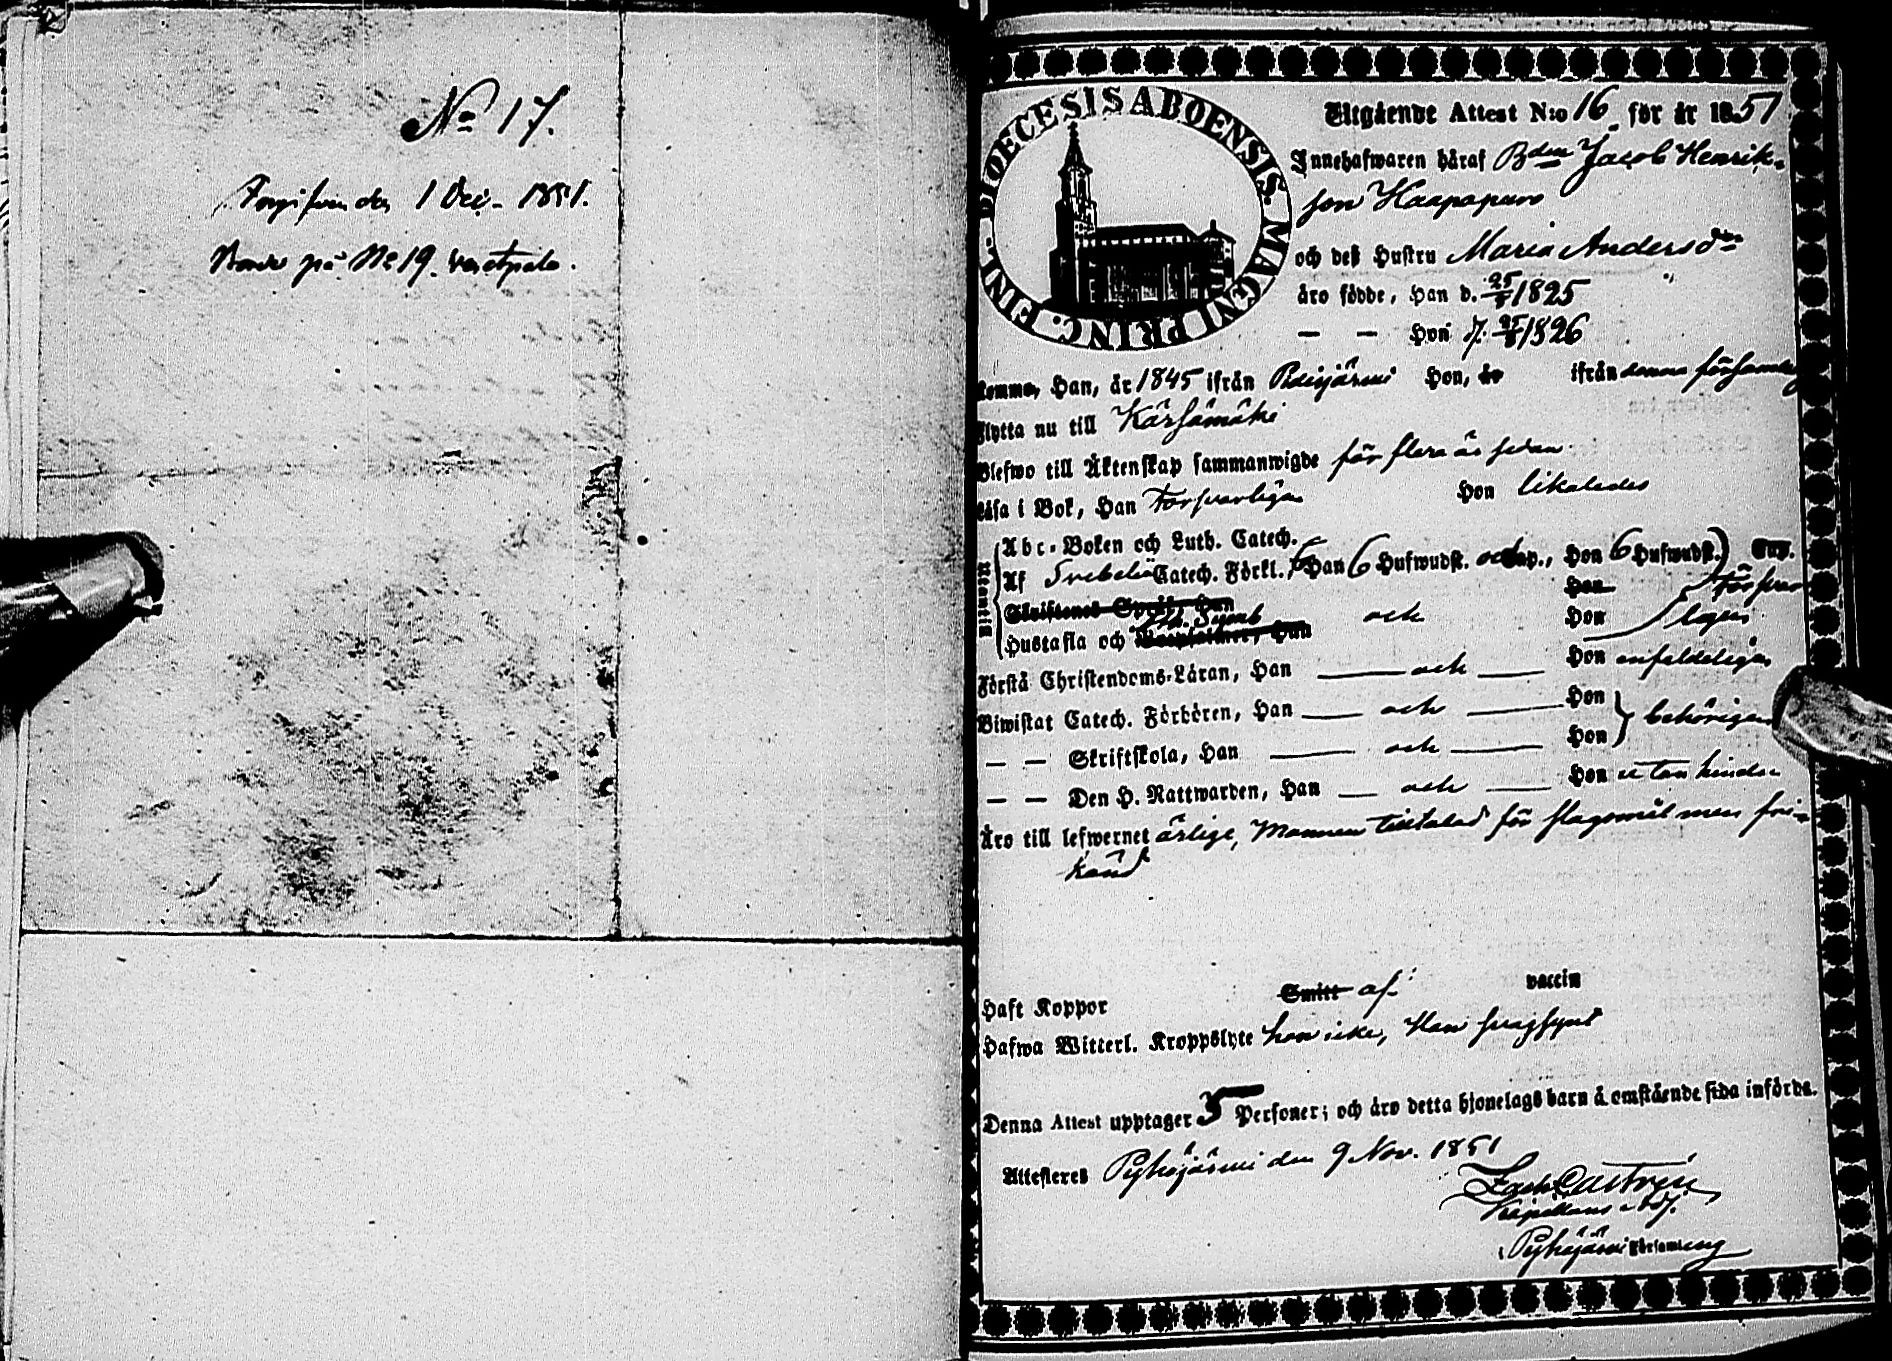 No 17.
den 1 Dec. 1851.
på No 19.
DIOECESIS ABOENSIS. MAGNI PRINC. FINL.
Utgående Attest N:o 16 för år 1851
Innehafwaren häraf Bden Jacob Henrik-
son Haapapuro
och deß Hustru Maria Andersdr
äro födde, Han d. 25/5 1825
— — Hon d. 1826
komma, Han, år 1845 ifrån Pidisjärwi Hon, år ifrån denna församling
Flytta nu till Kärsämäki
Blefwo till Äktenskap sammanwigde för flera år sedan
Läsa i Bok, Han Försvarligen Hon likaledes
Utantill
Abc-Boken och Luth. Catech.
Af Svebelii Catech. Förkl., Han 6 Hufwudst. och Cap., Hon 6 Hufwudst. Cap.
Skriftenes Språk, Han Hon försvar-
Hustafla och Ath. Symb och Hon ligen
Förstå Christendoms-Läran, Han — och — Hon enfaldeligen
Biwistat Catech. Förhören, Han — och — Hon behörigen
— — Skriftskola, Han — och — Hon
— — Den H. Nattwarden, Han — och — Hon utan hinder
Äro till lefwernet ärlige, Mannen tilltalad för slagsmål men fri-
känd
Haft Koppor Smitt af vaccin
Hafwa Witterl. Kroppslyte hon icke, Han svagsynt
Denna Attest upptager 5 Personer; och äro detta hjonelags barn å omstående sida införda.
Attesteres Pyhäjärvi den 9 Nov. 1851
Zach Castrén
Kapellan
i Pyhäjärvi Församling